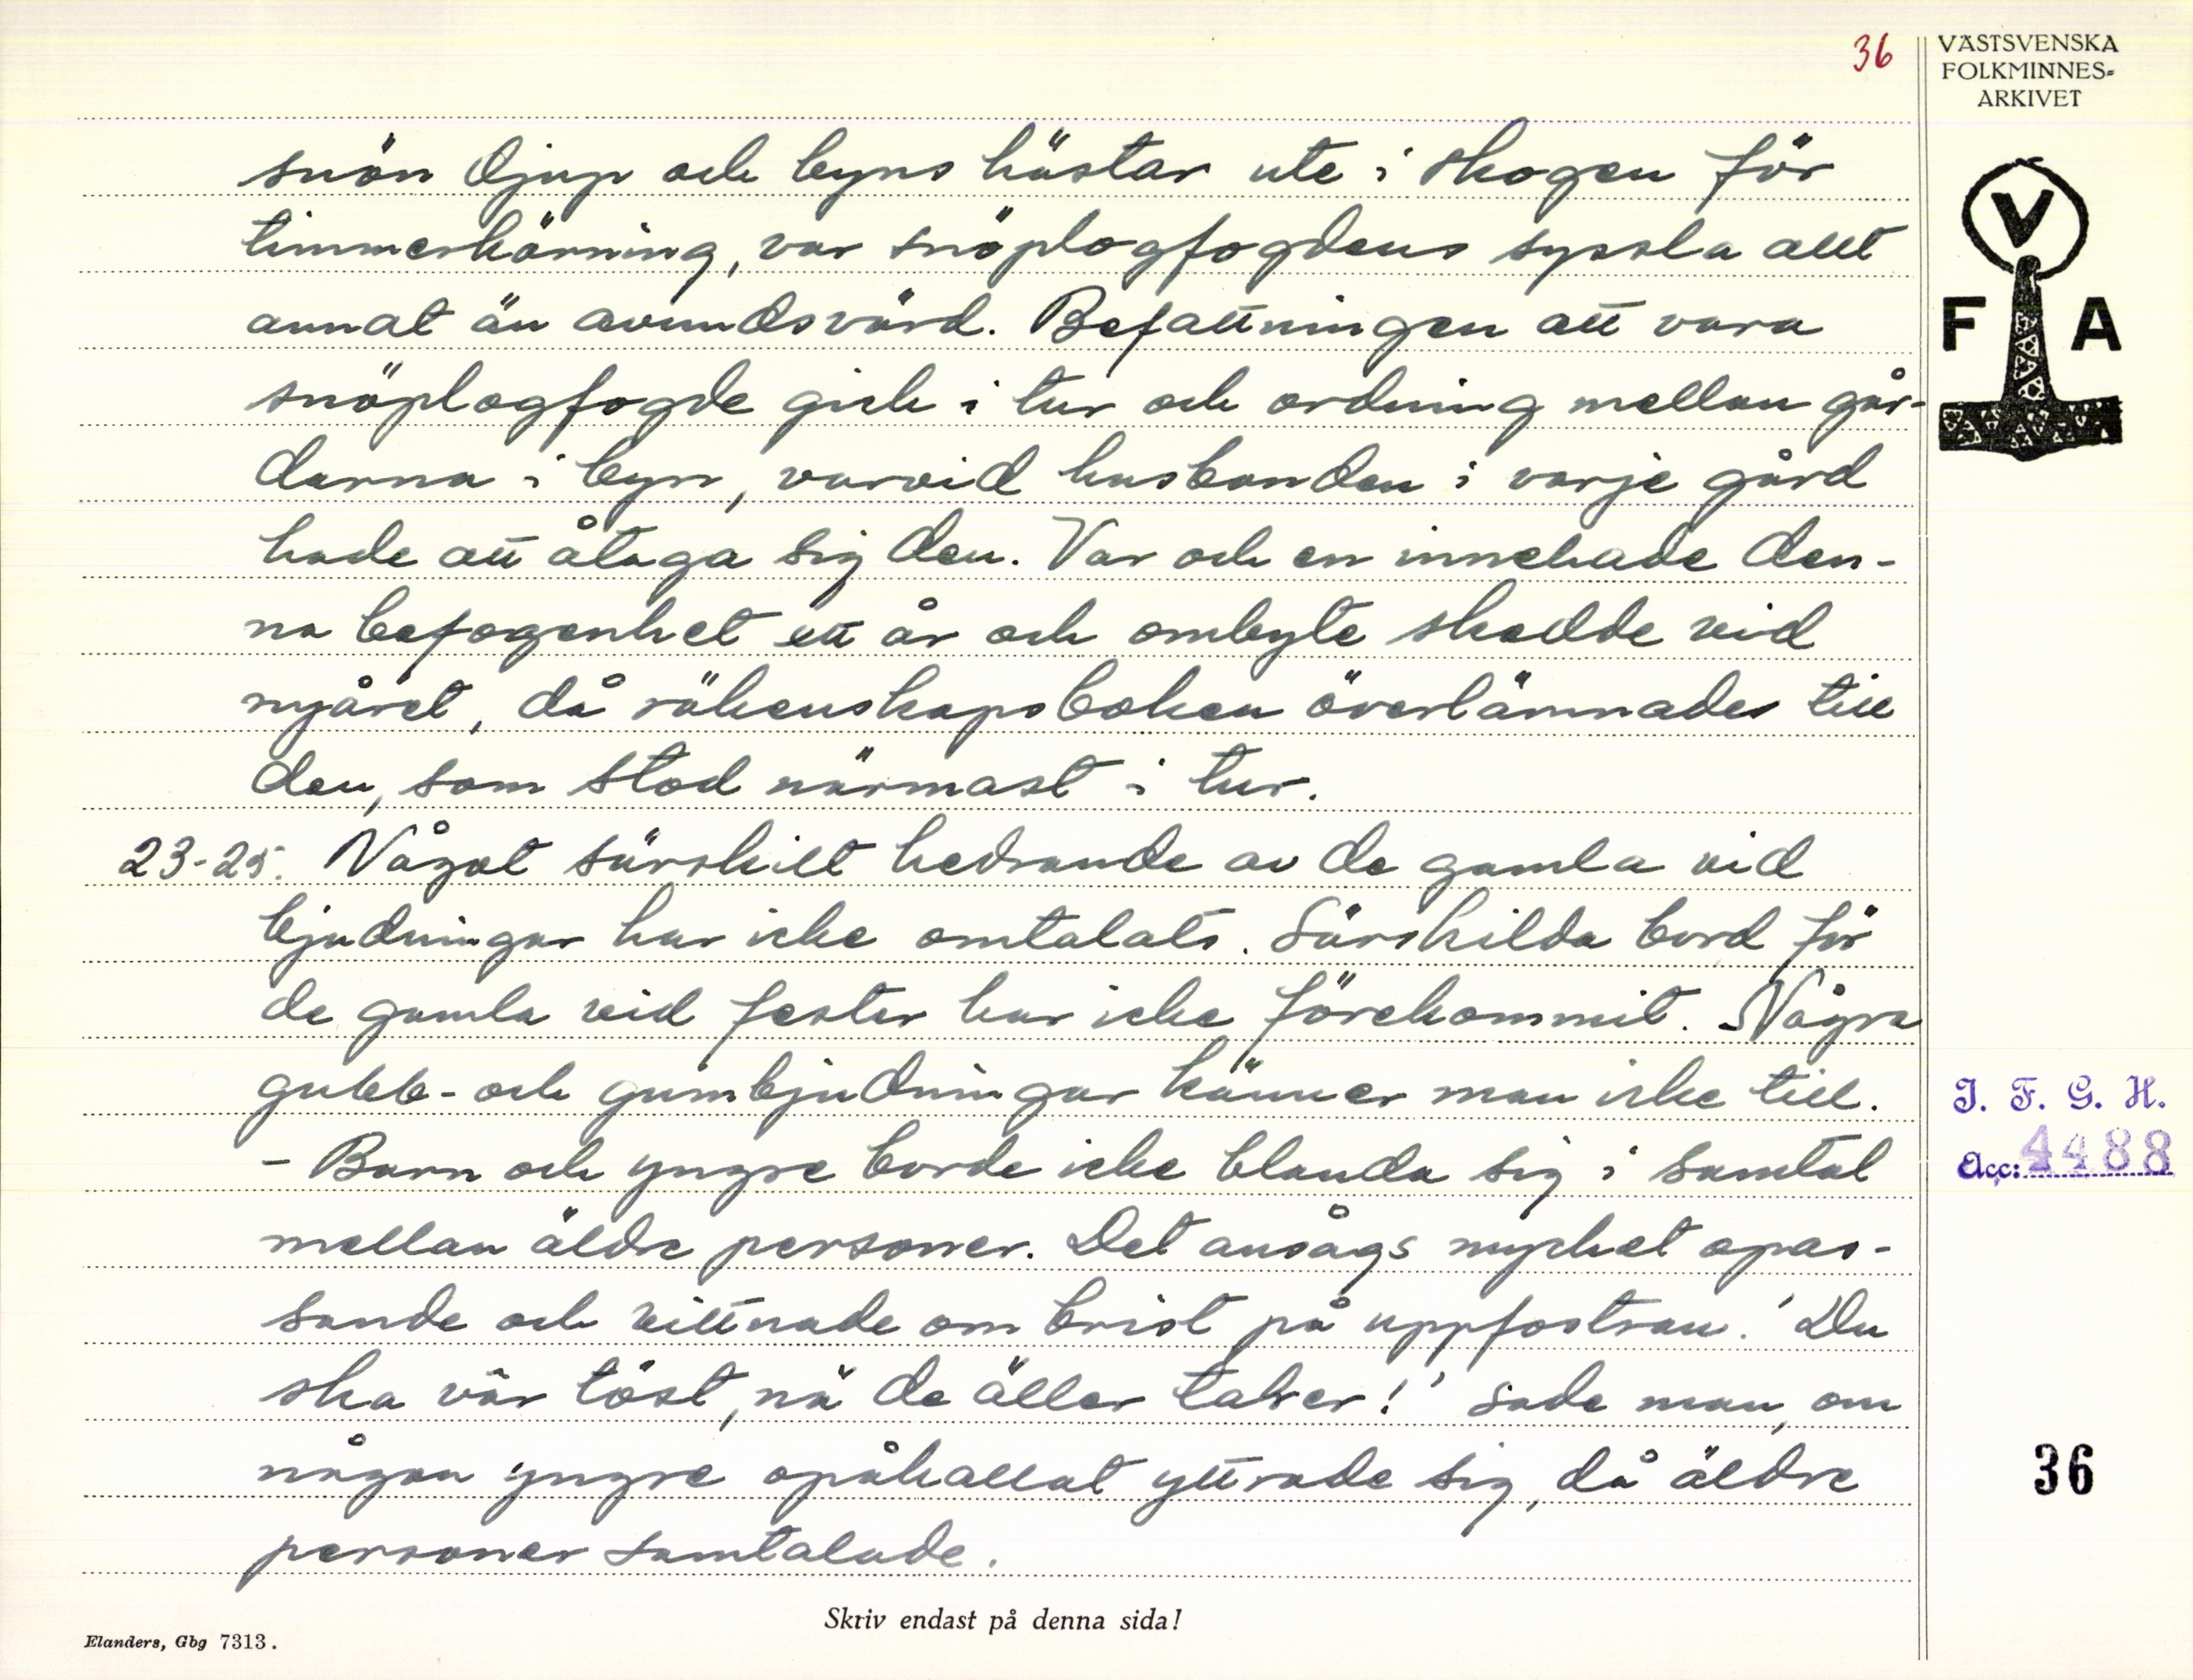 36
VÄSTSVENSKA
FOLKMINNES=
ARKIVET
V
F A
snön djup och byns hästar ute i skogen för
timmerkörning, var snöplogfogdens syssla allt
annat än avundsvärd. Befattningen att vara
snöplogfogde gick i tur och ordning mellan går-
darna i byn, varvid husbonden i varje gård
hade att åtaga sig den. Var och en innehade den-
na befogenhet ett år och ombyte skedde vid
nyåret, då räkenskapsboken överlämnades till
den, som stod närmast i tur.
23-25. Något särskilt hedrande av de gamla vid
bjudningar har icke omtalats. Särskilda bord för
de gamla vid fester har icke förekommit. Några
gubb- och gumbjudningar känner man icke till.
- Barn och yngre borde icke blanda sig i samtal
mellan äldre personer. Det ansågs mycket opas-
sande och vittnade om brist på uppfostran. 'Du
ska vär töst, nä de äller talser!' sade man, om
någon yngre opåkallat yttrade sig, då äldre
personer samtalade.
I. F. G. H.
Acc: 4488
36
Skriv endast på denna sida!
Elanders, Gbg 7313.